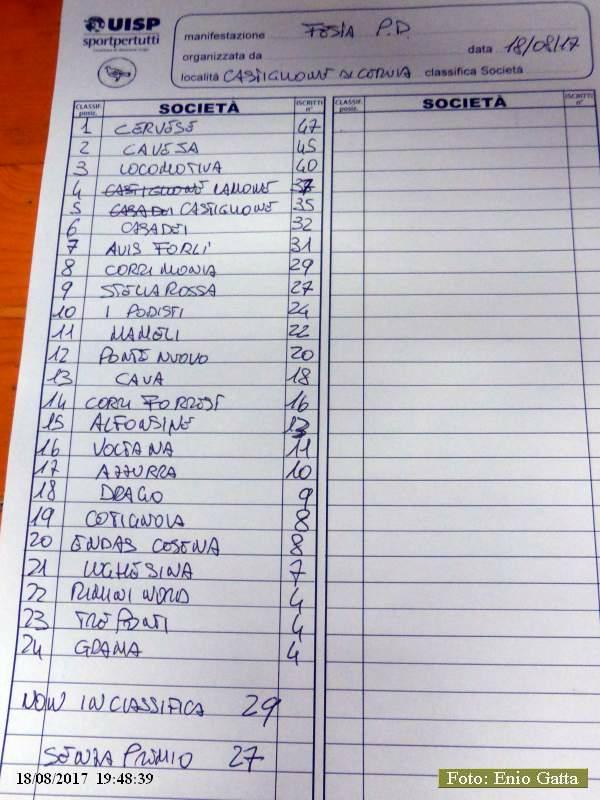 UISP
sportpertutti
manifestazione FESTA P.D.
organizzata da data 18/08/17
località CASTIGLIONE DI CERVIA classifica Società
CLASSIF. posiz. SOCIETÀ ISCRITTI n° CLASSIF. posiz. SOCIETÀ ISCRITTI n°
1 CERVESE 47
2 CAVEJA 45
3 LOCOMOTIVA 40
4 CASTIGLIONE LAMONE 37
5 CASADEI CASTIGLIONE 35
6 CASADEI 32
7 AVIS FORLI' 31
8 CORRIMONIA 29
9 STELLA ROSSA 27
10 I PODISTI 24
11 MAMELI 22
12 PONTE NUOVO 20
13 CAVA 18
14 CORRI FORREST 16
15 ALFONSINE 13
16 VOLTANA 11
17 AZZURRA 10
18 DRAGO 9
19 COTIGNOLA 8
20 ENDAS CESENA 8
21 LUGHESINA 7
22 RIMINI NORD 4
23 TRE PONTI 4
24 GRAMA 4
NON IN CLASSIFICA 29
SENZA PREMIO 27
18/08/2017 19:48:39
Foto: Enio Gatta